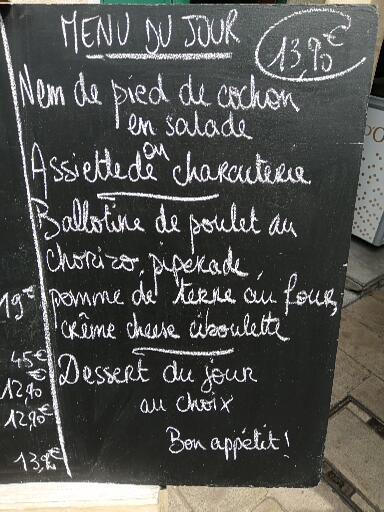 MENU DU JOUR
13,90€
Nem de pied de cochon
en salade
ou
Assiette de charcuterie
Ballotine de poulet au
chorizo, piperade,
pomme de terre au four,
crème cheese ciboulette
Dessert du jour
au choix
Bon appétit !
19€
45€
€
12,90
12,90€
13,90€